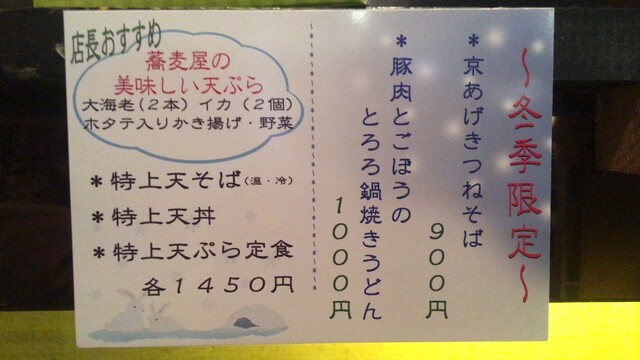 ～冬季限定～
＊京あげきつねそば
９００円
＊豚肉とごぼうの
とろろ鍋焼きうどん
１０００円
店長おすすめ
蕎麦屋の
美味しい天ぷら
大海老（２本）イカ（２個）
ホタテ入りかき揚げ・野菜
＊特上天そば（温・冷）
＊特上天丼
＊特上天ぷら定食
各１４５０円